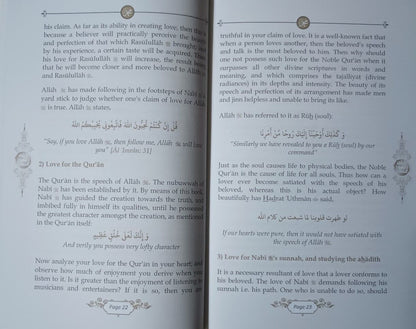 his claim. As far as its ability in creating love, then this is
because a believer will practically perceive the beauty
and perfection of that which Rasūlullāh ﷺ brought; and
by his experience, a certain taste will be acquired. Then
his love for Rasūlullāh ﷺ will increase, the result being
that he will become closer and more beloved to Allāh ﷻ
and Rasūlullāh ﷺ.
Allāh ﷻ has made following in the footsteps of Nabī ﷺ a
yard stick to judge whether one's claim of love for Allāh
ﷻ is true. Allāh ﷻ states,
قُلْ إِن كُنتُمْ تُحِبُّونَ اللَّهَ فَاتَّبِعُونِي يُحْبِبْكُمُ اللَّهُ
"Say, if you love Allāh ﷻ, then follow me, Allāh ﷻ will love
you" [Al Imrān: 31]
2) Love for the Qur'ān
The Qur'ān is the speech of Allāh ﷻ. The nubuwwah of
Nabī ﷺ has been established by it. By means of this book,
Nabī ﷺ guided the creation towards the truth, and
imbibed fully in himself its qualities, until he possessed
the greatest character amongst the creation, as mentioned
in the Qur'ān itself:
وَ إِنَّكَ لَعَلَى خُلُقٍ عَظِيمٍ
And verily you possess very lofty character
Now analyze your love for the Qur'ān in your heart; and
observe how much of enjoyment you derive when you
listen to it. Is it greater than the enjoyment of listening to
musicians and entertainers? If it is so, then you are
Page 22
truthful in your claim of love. It is a well-known fact that
when a person loves another, then the beloved's speech
and talk is the most beloved to him. Then why should
one not possess such love for the Noble Qur'ān when it
surpasses all other divine scriptures in words and
meaning, and which comprises the tajalliyat (divine
radiances) in its depths and intensity. The beauty of its
speech and perfection of its arrangement has made men
and jinn helpless and unable to bring its like.
Allāh ﷻ has referred to it as Rūḥ (soul).
وَ كَذَلِكَ أَوْحَيْنَا إِلَيْكَ رُوحًا مِّنْ أَمْرِنَا
"Similarly we have revealed to you a Rūḥ (soul) by our
command"
Just as the soul causes life to physical bodies, the Noble
Qur'ān is the cause of life for all souls. Thus how can a
lover ever become satiated with the speech of his
beloved, whereas this is his actual object? How
beautifully has Ḥaḍrat 'Uthmān said,
لو طهرت قلوبنا ما شبعت من كلام الله
If our hearts were pure, then it would not have satiated with
the speech of Allāh ﷻ.
3) Love for Nabī ﷺ's sunnah, and studying the aḥādīth
It is a necessary resultant of love that a lover conforms to
his beloved. The love of Nabī ﷺ demands following his
sunnah i.e. his path. One who is unable to do so, should
Page 23